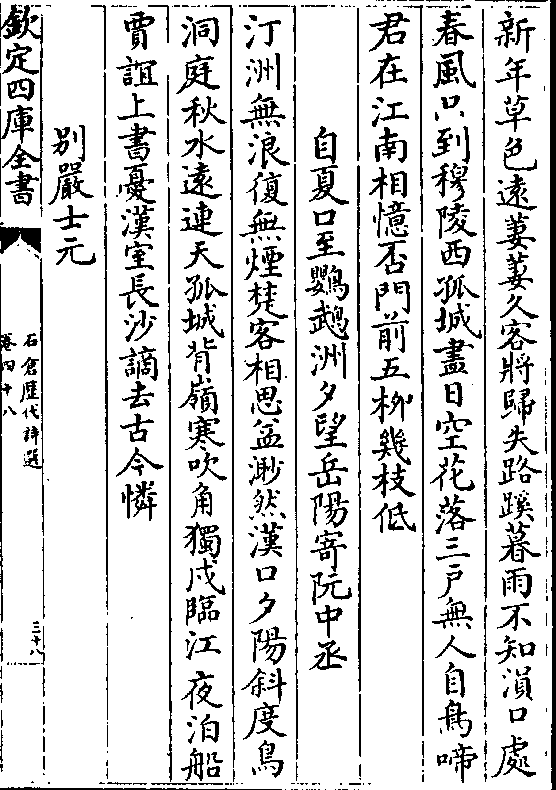 新年草色遠萋萋久客將歸失路蹊暮雨不知溳口處
春風只到穆陵西孤城盡日空花落三戸無人自鳥啼
君在江南相憶否門前五栁幾枝低
自夏口至鸚鵡洲夕望岳陽寄阮中丞
汀洲無浪復無煙楚客相思益渺然漢口夕陽斜度鳥
洞庭秋水遠連天孤城背嶺寒吹角獨戍臨江夜泊船
賈誼上書憂漢室長沙謫去古今憐
別嚴士元
欽定四庫全書
石倉歴代詩選
卷四十八
三十八